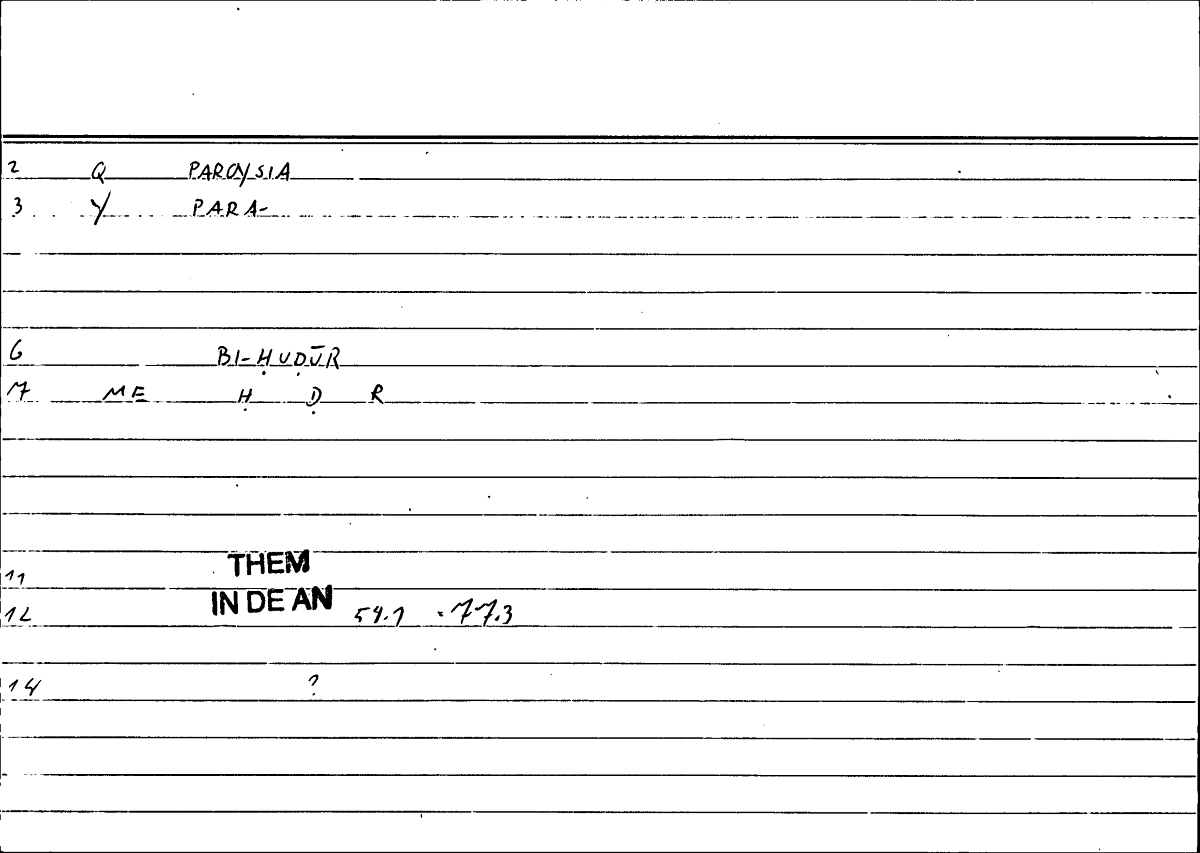 2 Q PAROYSIA
3 Y PARA-
6 BI-ḤUḌŪR
7 ME Ḥ Ḍ R
11 THEM
12 IN DE AN 54.1 - 77.3
14 ?